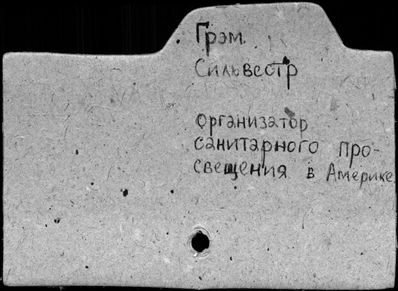 Грэм
Сильвестр
организатор
санитарного про-
свещения в Америке